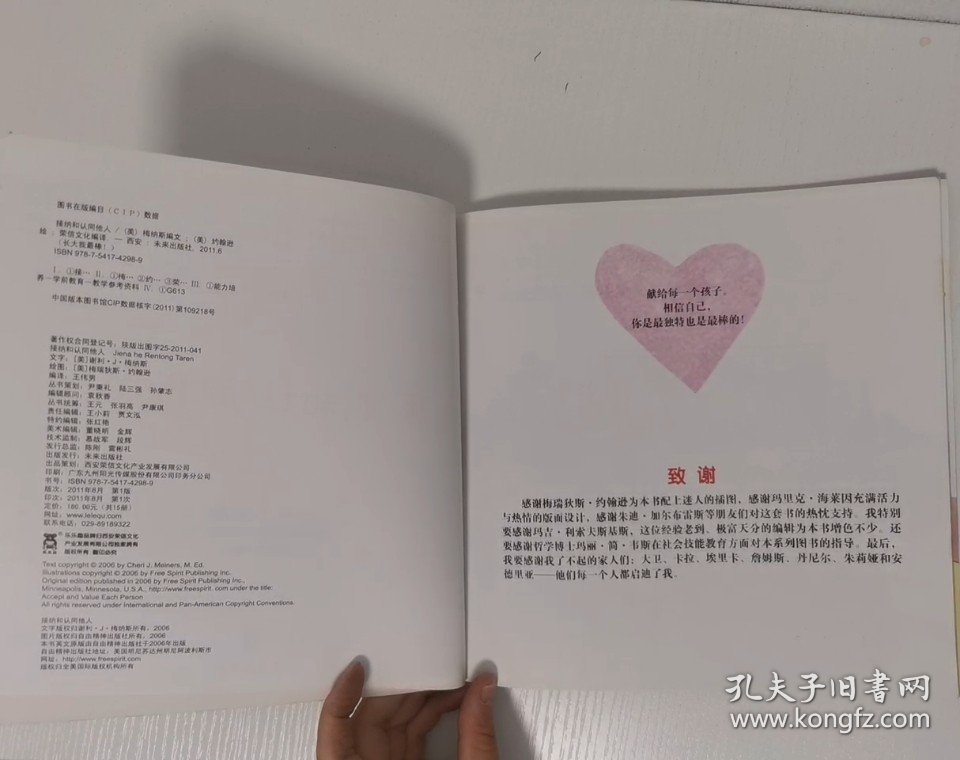 图书在版编目(CIP)数据
接纳和认同他人 / (美) 梅纳斯编文 ; (美) 约翰逊
绘 ; 荣信文化编译. — 西安 : 未来出版社, 2011.6
(长大我最棒!)
ISBN 978-7-5417-4298-9
Ⅰ. ①接… Ⅱ. ①梅… ②约… ③荣… Ⅲ. ①能力培
养—学前教育—教学参考资料 Ⅳ. ①G613
中国版本图书馆CIP数据核字(2011)第109218号
著作权合同登记号: 陕版出图字25-2011-041
接纳和认同他人 Jiena he Rentong Taren
文字: [美]谢利·J·梅纳斯
绘图: [美]梅瑞狄斯·约翰逊
编译: 王伟男
丛书策划: 尹秉礼 陆三强 孙肇志
编辑顾问: 袁秋香
丛书统筹: 王元 张羽高 尹康琪
责任编辑: 王小莉 贾文泓
特约编辑: 张红艳
美术编辑: 董晓明 金辉
技术监制: 慕战军 段辉
发行总监: 陈刚 雷彬礼
出版发行: 未来出版社
出品策划: 西安荣信文化产业发展有限公司
印刷: 广东九州阳光传媒股份有限公司印务分公司
书号: ISBN 978-7-5417-4298-9
版次: 2011年8月 第1版
印次: 2011年8月 第1次
定价: 180.00元 (共15册)
网址: www.lelequ.com
联系电话: 029-89189322
乐乐趣品牌归西安荣信文化
产业发展有限公司独家拥有
版权所有 翻印必究
Text copyright © 2006 by Cheri J. Meiners, M. Ed.
Illustrations copyright © 2006 by Free Spirit Publishing Inc.
Original edition published in 2006 by Free Spirit Publishing Inc.,
Minneapolis, Minnesota, U.S.A., http://www.freespirit. com under the title:
Accept and Value Each Person
All rights reserved under International and Pan-American Copyright Conventions.
接纳和认同他人
文字版权归谢利·J·梅纳斯所有, 2006
图片版权归自由精神出版社所有, 2006
本书英文原版由自由精神出版社于2006年出版
自由精神出版社地址: 美国明尼苏达州明尼阿波利斯市
网址: http://www.freespirit.com
版权归全美国际版权机构所有
献给每一个孩子。
相信自己,
你是最独特也是最棒的!
致 谢
感谢梅瑞狄斯·约翰逊为本书配上迷人的插图, 感谢玛里克·海莱因充满活力
与热情的版面设计, 感谢朱迪·加尔布雷斯等朋友们对这套书的热忱支持。我特别
要感谢玛吉·利索夫斯基斯, 这位经验老到、极富天分的编辑为本书增色不少。还
要感谢哲学博士玛丽·简·韦斯在社会技能教育方面对本系列图书的指导。最后,
我要感谢我了不起的家人们: 大卫、卡拉、埃里卡、詹姆斯、丹尼尔、朱莉娅和安
德里亚——他们每一个人都启迪了我。
孔夫子旧书网
www.kongfz.com